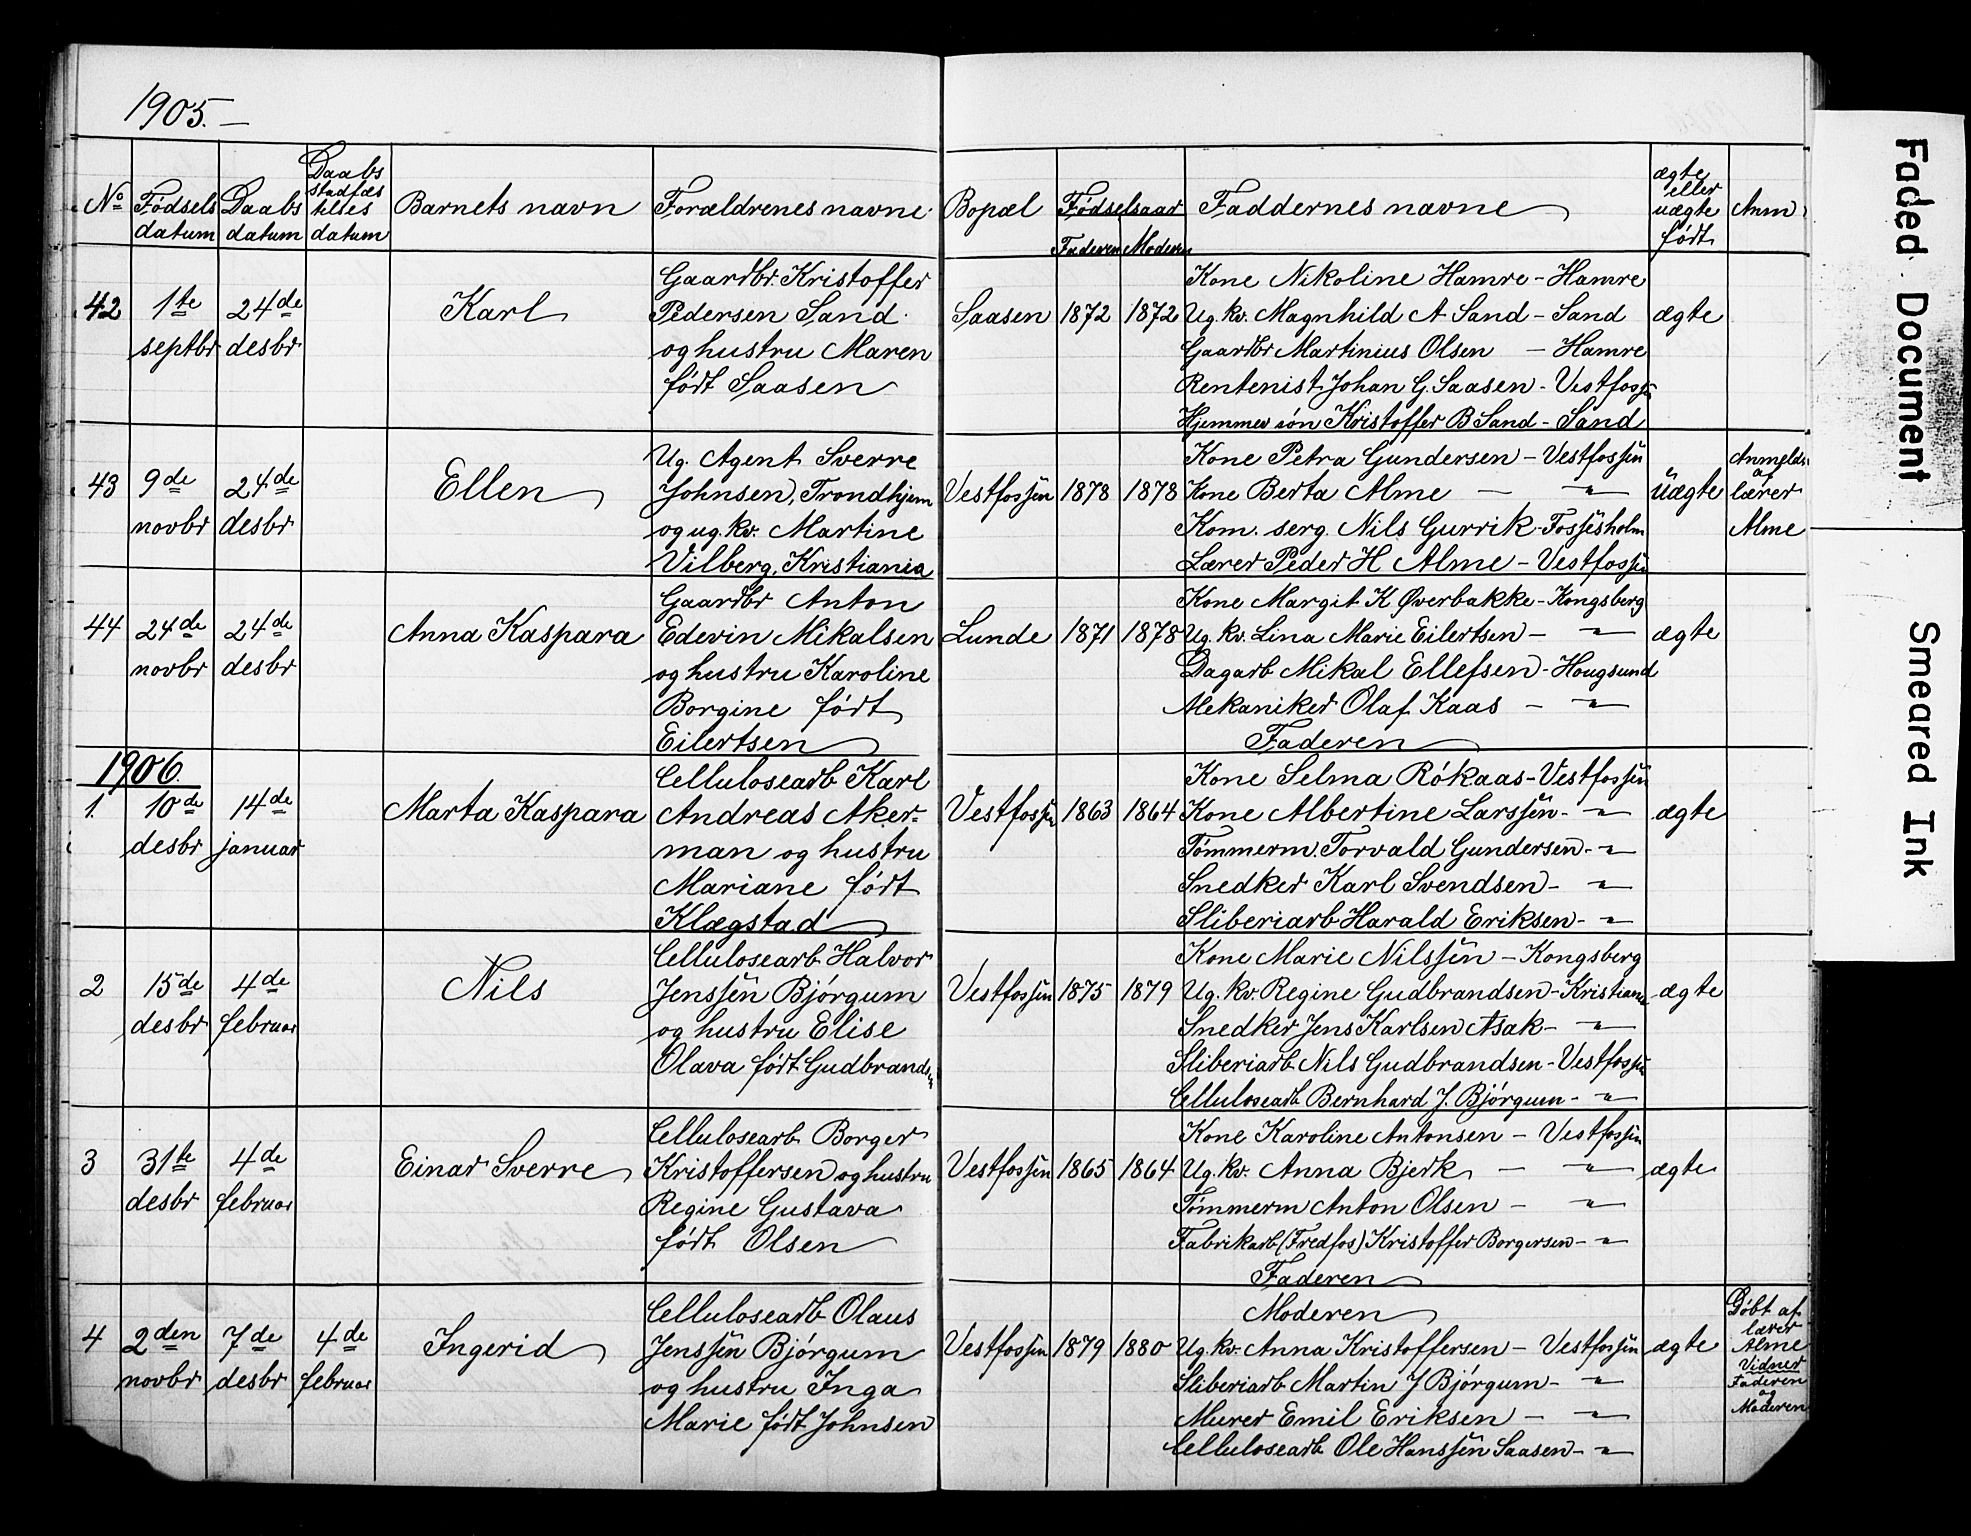 1905.
No Fødsels datum Daabs datum Daabs stadfæs telses datum Barnets navn Forældrenes navne Bopæl Fødselsaar Faderen Moderen Faddernes navne ægte eller uægte født Anm
42 1ste septbr 24de desbr Karl
Gaardbr. Kristoffer
Pedersen Sand
og hustru Maren
født Saasen
Saasen 1872 1872
Kone Nikoline Hamre - Hamre
Ug. kv. Magnhild A Sand - Sand
Gaardbr Martinius Olsen - Hamre
Rentenist Johan G. Saasen - Vestfossen
Hjemmev søn Kristoffer B Sand - Sand
ægte
43 9de novbr 24de desbr Ellen
Ug. Agent Sverre
Johnsen, Trondhjem
og ug. kv. Martine
Vilberg, Kristiania
Vestfossen 1878 1878
Kone Petra Gundersen - Vestfossen
Kone Berta Alme - "
Kom. serg. Nils Gurrik - Fossesholm
Lærer Peder H Alme - Vestfossen
Uægte
Anmeldt
af
lærer
Alme
44 24de novbr 24de desbr Anna Kaspara
Gaardbr Anton
Edevin Mikalsen
og hustru Karoline
Borgine født
Eilertsen
Lunde 1871 1878
Kone Margit K Øverbakke - Kongsberg
Ug. kv. Lina Marie Eilertsen - "
Dagarb Mikal Ellefsen - Hougsund
Mekaniker Olaf Kaas - "
Faderen
ægte
1906.
1. 10de desbr 14de januar Marta Kaspara
Cellulosearb Karl
Andreas Aker-
man og hustru
Mariane født
Klægstad
Vestfossen 1863 1864
Kone Selma Røkaas - Vestfossen
Kone Albertine Larssen - "
Tømmerm. Torvald Gundersen - "
Snedker Karl Svendsen - "
Sliberiarb Harald Eriksen - "
ægte
2 15de desbr 4de februar Nils
Cellulosearb Halvor
Jenssen Bjørgum
og hustru Elise
Olava født Gudbrandsen
Vestfossen 1875 1879
Kone Marie Nilssen - Kongsberg
Ug. kv. Regine Gudbrandsen - Kristiania
Snedker Jens Karlsen Asak - "
Sliberiarb Nils Gudbrandsen - Vestfossen
Cellulosearb Bernhard J. Bjørgum - "
ægte
3 31te desbr 4de februar Einar Sverre
Cellulosearb Borger
Kristoffersen og hustru
Regine Gustava
født Olsen
Vestfossen 1865 1864
Kone Karoline Antonsen - Vestfossen
Ug. kv. Anna Bjerk - "
Tømmerm Anton Olsen - "
Fabrikarb (Fredfos) Kristoffer Borgersen - "
Faderen
ægte
4 2den novbr 7de desbr 4de februar Ingerid
Cellulosearb Olaus
Jenssen Bjørgum
og hustru Inga
Marie født Johnsen
Vestfossen 1879 1880
Moderen
Ug. kv. Anna Kristoffersen - Vestfossen
Sliberiarb Martin J Bjørgum - "
Murer Emil Eriksen - "
Cellulosearb Ole Hanssen Saasen - "
ægte
Døbt af
lærer
Alme
Vidner
Faderen
og
Moderen
Faded Document
Smeared Ink